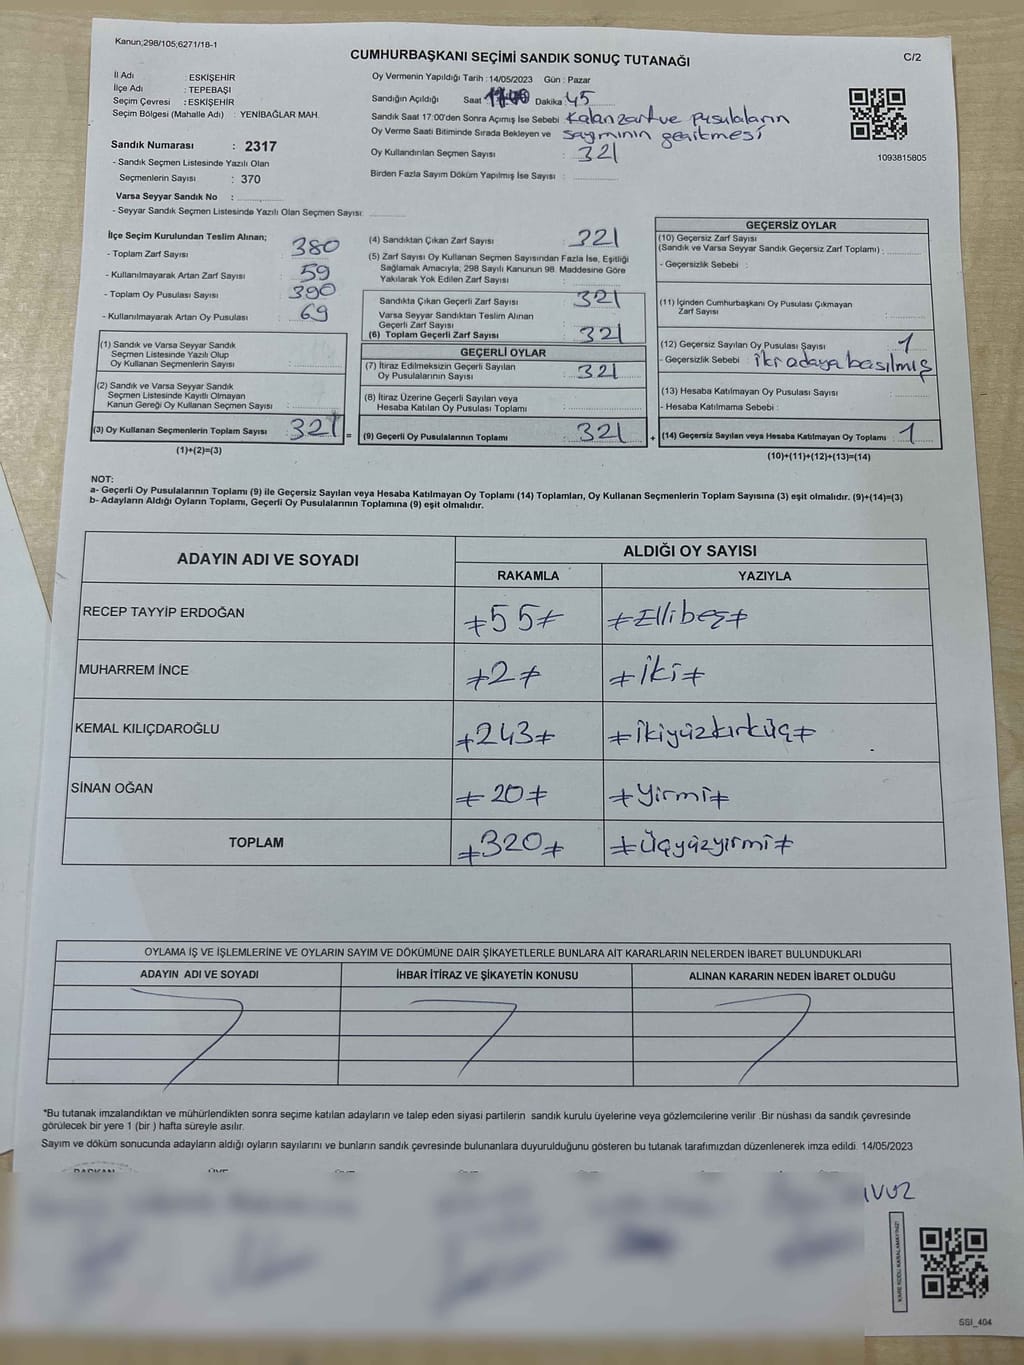 Kanun;298/105;6271/18-1
CUMHURBAŞKANI SEÇİMİ SANDIK SONUÇ TUTANAĞI
C/2
İl Adı : ESKİŞEHİR
İlçe Adı : TEPEBAŞI
Seçim Çevresi : ESKİŞEHİR
Seçim Bölgesi (Mahalle Adı) : YENİBAĞLAR MAH.
Sandık Numarası : 2317
- Sandık Seçmen Listesinde Yazılı Olan
Seçmenlerin Sayısı : 370
Varsa Seyyar Sandık No :
- Seyyar Sandık Seçmen Listesinde Yazılı Olan Seçmen Sayısı:
Oy Vermenin Yapıldığı Tarih : 14/05/2023 Gün : Pazar
Sandığın Açıldığı Saat Dakika : 45
Sandık Saat 17:00'den Sonra Açımış İse Sebebi : Kalan zarf ve pusulaların
Oy Verme Saati Bitiminde Sırada Bekleyen ve sayımının gecikmesi
Oy Kullandırılan Seçmen Sayısı : 321
Birden Fazla Sayım Döküm Yapılmış İse Sayısı :
1093815805
İlçe Seçim Kurulundan Teslim Alınan;
- Toplam Zarf Sayısı : 380
- Kullanılmayarak Artan Zarf Sayısı : 59
- Toplam Oy Pusulası Sayısı : 390
- Kullanılmayarak Artan Oy Pusulası : 69
(1) Sandık ve Varsa Seyyar Sandık
Seçmen Listesinde Yazılı Olup
Oy Kullanan Seçmenlerin Sayısı :
(2) Sandık ve Varsa Seyyar Sandık
Seçmen Listesinde Kayıtlı Olmayan
Kanun Gereği Oy Kullanan Seçmen Sayısı :
(3) Oy Kullanan Seçmenlerin Toplam Sayısı : 321 =
(1)+(2)=(3)
(4) Sandıktan Çıkan Zarf Sayısı : 321
(5) Zarf Sayısı Oy Kullanan Seçmen Sayısından Fazla İse, Eşitliği
Sağlamak Amacıyla, 298 Sayılı Kanunun 98. Maddesine Göre
Yakılarak Yok Edilen Zarf Sayısı :
Sandıkta Çıkan Geçerli Zarf Sayısı : 321
Varsa Seyyar Sandıktan Teslim Alınan
Geçerli Zarf Sayısı :
(6) Toplam Geçerli Zarf Sayısı : 321
GEÇERLİ OYLAR
(7) İtiraz Edilmeksizin Geçerli Sayılan
Oy Pusulalarının Sayısı : 321
(8) İtiraz Üzerine Geçerli Sayılan veya
Hesaba Katılan Oy Pusulaları Toplamı :
(9) Geçerli Oy Pusulalarının Toplamı : 321 +
GEÇERSİZ OYLAR
(10) Geçersiz Zarf Sayısı
(Sandık ve Varsa Seyyar Sandık Geçersiz Zarf Toplamı) :
- Geçersizlik Sebebi :
(11) İçinden Cumhurbaşkanı Oy Pusulası Çıkmayan
Zarf Sayısı :
(12) Geçersiz Sayılan Oy Pusulası Sayısı : 1
- Geçersizlik Sebebi : iki adaya basılmış
(13) Hesaba Katılmayan Oy Pusulası Sayısı :
- Hesaba Katılmama Sebebi :
(14) Geçersiz Sayılan veya Hesaba Katılmayan Oy Toplamı : 1
(10)+(11)+(12)+(13)=(14)
NOT:
a- Geçerli Oy Pusulalarının Toplamı (9) ile Geçersiz Sayılan veya Hesaba Katılmayan Oy Toplamı (14) Toplamları, Oy Kullanan Seçmenlerin Toplam Sayısına (3) eşit olmalıdır. (9)+(14)=(3)
b- Adayların Aldığı Oyların Toplamı, Geçerli Oy Pusulalarının Toplamına (9) eşit olmalıdır.
ADAYIN ADI VE SOYADI ALDIĞI OY SAYISI
RAKAMLA YAZIYLA
RECEP TAYYİP ERDOĞAN ≠55≠ ≠Ellibeş≠
MUHARREM İNCE ≠2≠ ≠İki≠
KEMAL KILIÇDAROĞLU ≠243≠ ≠ikiyüzkırküç≠
SİNAN OĞAN ≠20≠ ≠Yirmi≠
TOPLAM ≠320≠ ≠Üçyüzyirmi≠
OYLAMA İŞ VE İŞLEMLERİNE VE OYLARIN SAYIM VE DÖKÜMÜNE DAİR ŞİKAYETLERLE BUNLARA AİT KARARLARIN NELERDEN İBARET BULUNDUKLARI
ADAYIN ADI VE SOYADI İHBAR İTİRAZ VE ŞİKAYETİN KONUSU ALINAN KARARIN NEDEN İBARET OLDUĞU
*Bu tutanak imzalandıktan ve mühürlendikten sonra seçime katılan adayların ve talep eden siyasi partilerin sandık kurulu üyelerine veya gözlemcilerine verilir .Bir nüshası da sandık çevresinde
görülecek bir yere 1 (bir ) hafta süreyle asılır.
Sayım ve döküm sonucunda adayların aldığı oyların sayılarını ve bunların sandık çevresinde bulunanlara duyurulduğunu gösteren bu tutanak tarafımızdan düzenlenerek imza edildi. 14/05/2023
BAŞKAN ÜYE
SSİ_404